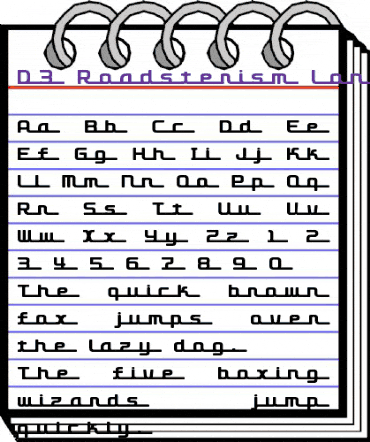 D3 Roadsterism Lon
Aa Bb Cc Dd Ee
Ff Gg Hh Ii Jj Kk
Ll Mm Nn Oo Pp Qq
Rr Ss Tt Uu Vv
Ww Xx Yy Zz 1 2
3 4 5 6 7 8 9 0
The quick brown
fox jumps over
the lazy dog.
The five boxing
wizards jump
quickly.